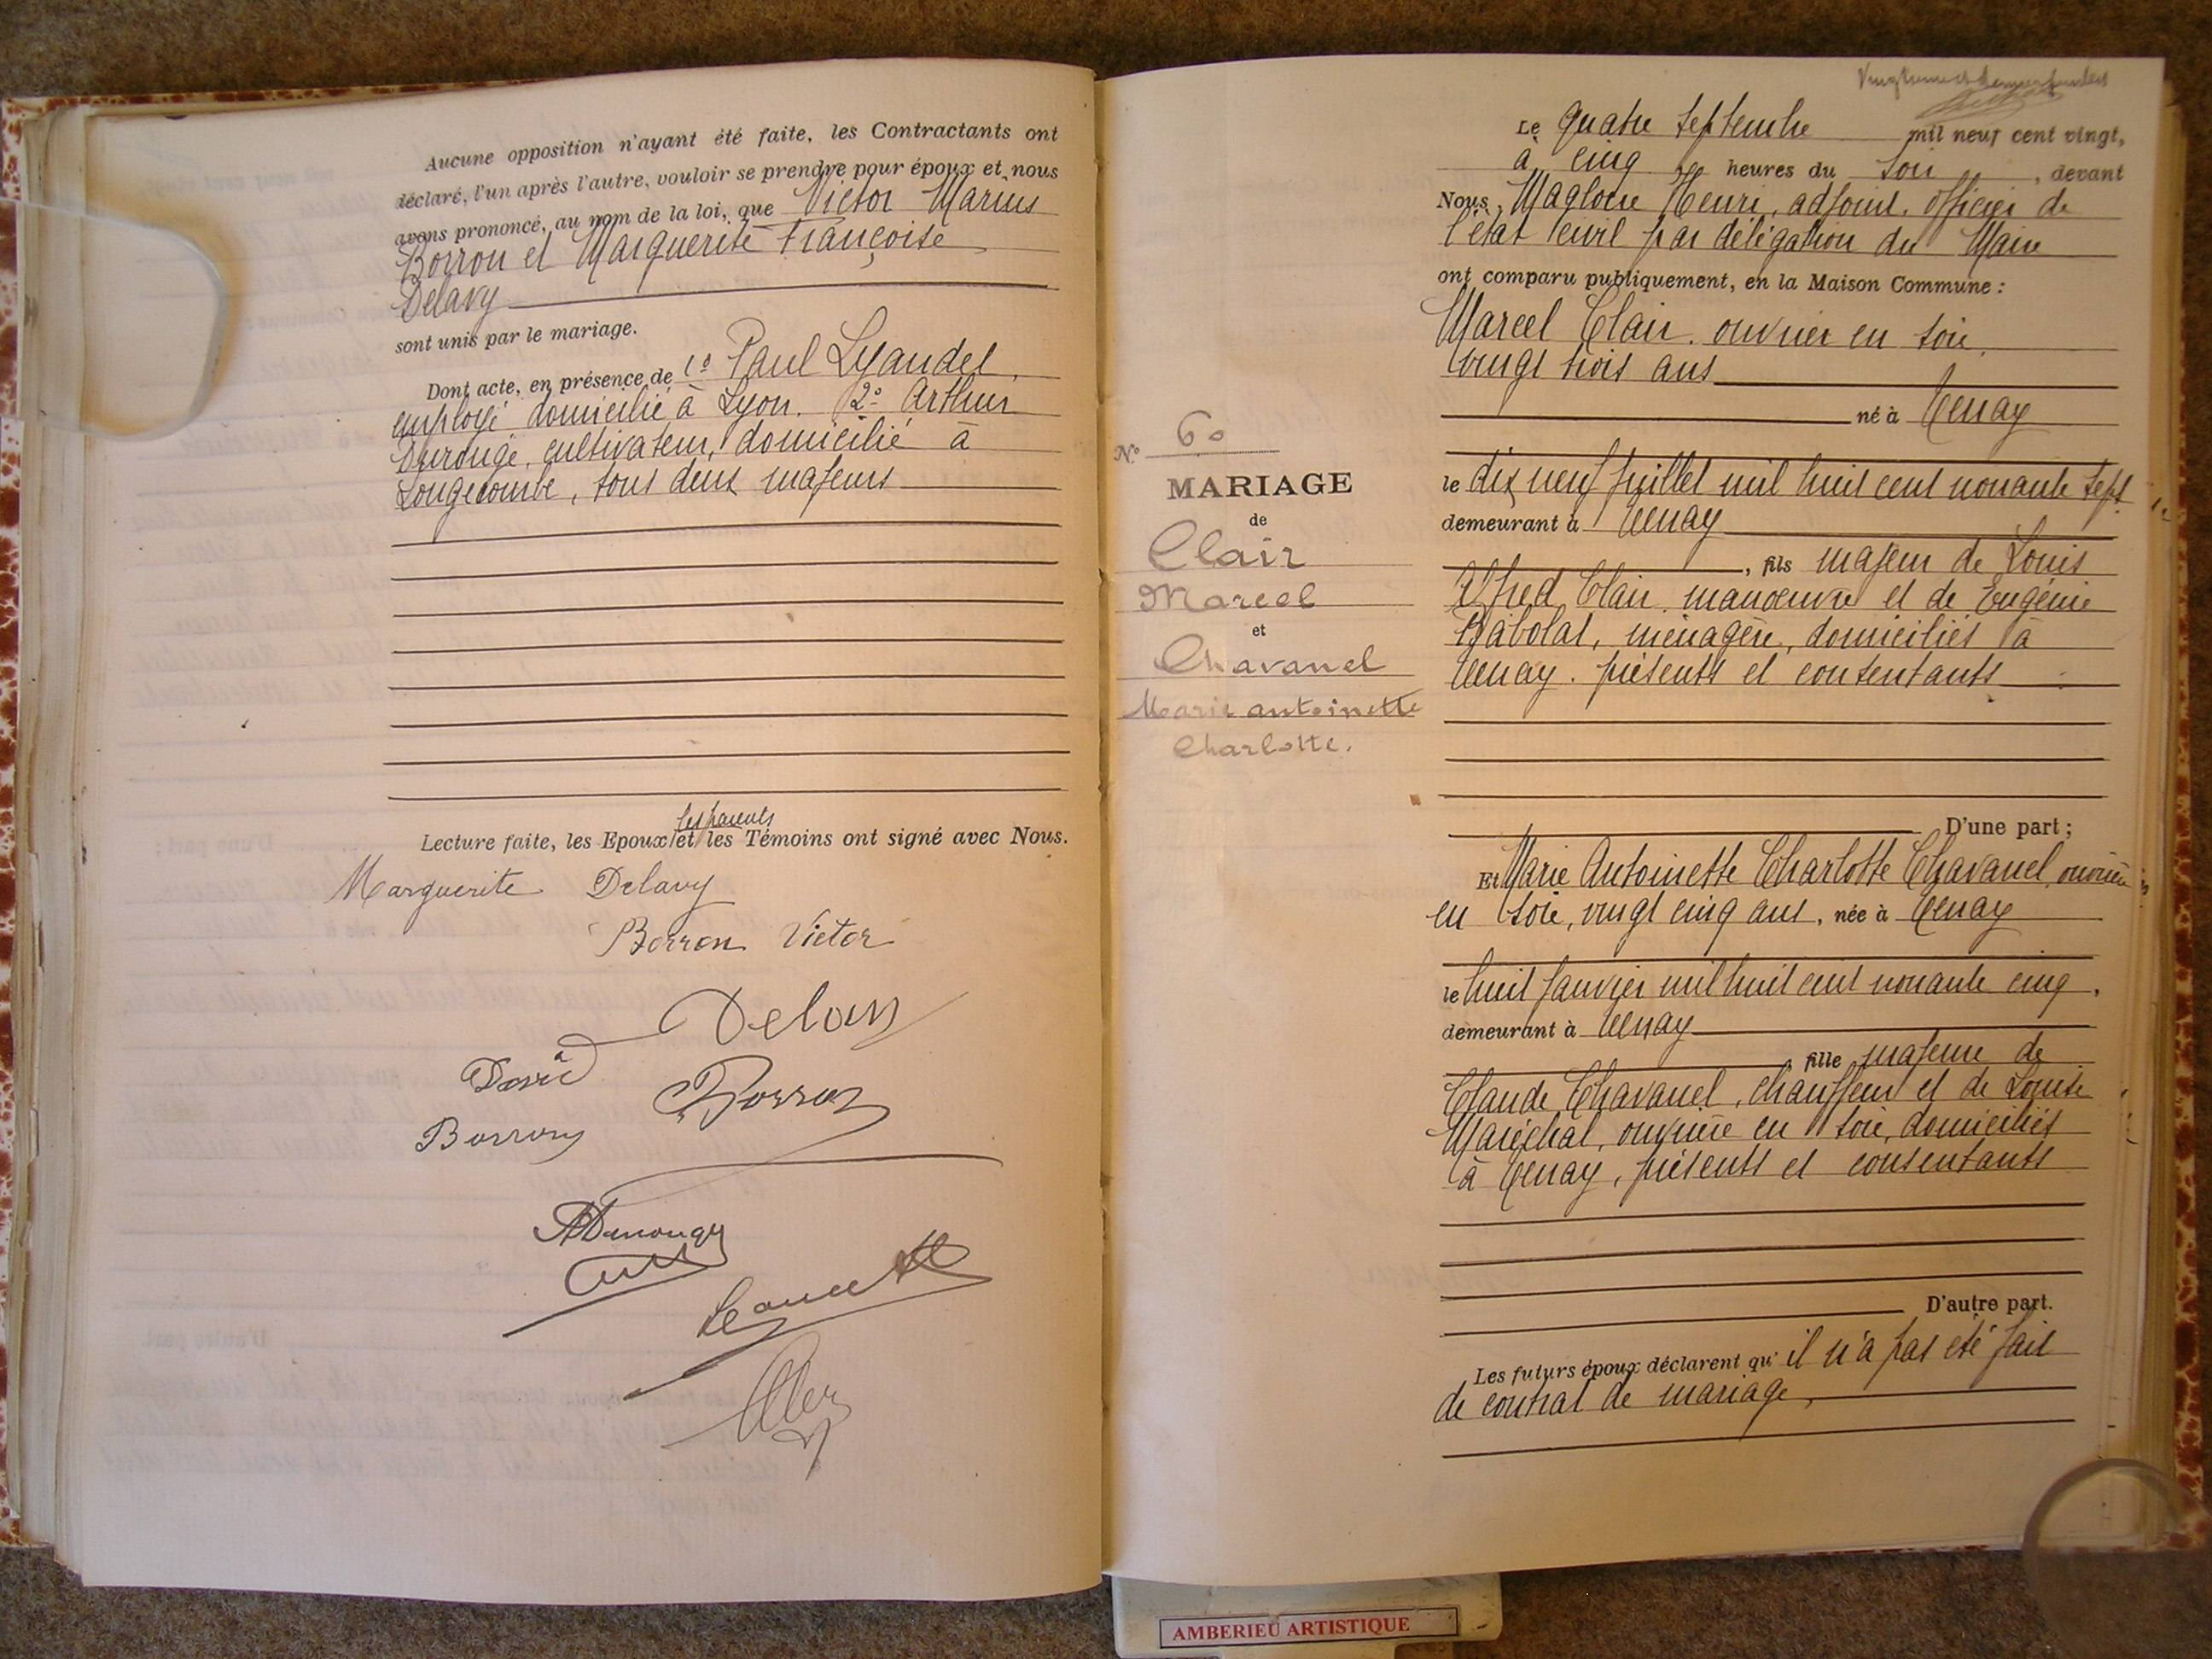 Aucune opposition n'ayant été faite, les Contractants ont
déclaré, l'un après l'autre, vouloir se prendre pour époux et nous
avons prononcé, au nom de la loi, que Victor Marius
Borron et Marguerite Françoise
Delavy
sont unis par le mariage.
Dont acte, en présence de 1º Paul Lyaudet,
employé domicilié à Lyon. 2º Arthur
cultivateur, domicilié à
Longecombe, tous deux majeurs
les parents
Lecture faite, les Epoux et les Témoins ont signé avec Nous.
Marguerite Delavy
Borron Victor
Borron
Borron
Nº 60
MARIAGE
de
Clair
Marcel
et
Chavanel
Marie antoinette
Charlotte.
Le quatre Septembre mil neuf cent vingt,
à cinq heures du soir, devant
Nous, Magloire Henri, adjoint, officier de
l'état civil par délégation du Maire
ont comparu publiquement, en la Maison Commune :
Marcel Clair. ouvrier en soie,
vingt trois ans
né à Tenay
le dix neuf juillet mil huit cent nonante sept
demeurant à Tenay
, fils majeur de Louis
Alfred Clair, manoeuvre et de Eugénie
Babolat, ménagère, domiciliés à
Tenay. présents et consentants
D'une part ;
Et Marie Antoinette Charlotte Chavanel, ouvrière
en soie, vingt cinq ans, née à Tenay
le huit janvier mil huit cent nonante cinq,
demeurant à Tenay
, fille majeure de
Claude Chavanel, chauffeur et de Louise
Maréchal, ouvrière en soie, domiciliés
à Tenay, présents et consentants
D'autre part.
Les futurs époux déclarent qu'il n'a pas été fait
de contrat de mariage,
AMBERIEU ARTISTIQUE